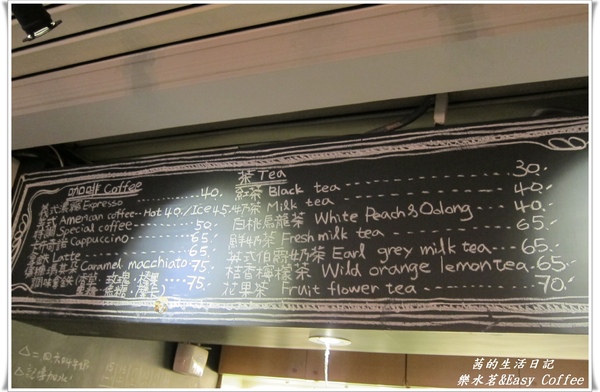 咖啡 Coffee
義式濃縮 Espresso 40.
美式 American coffee--Hot 40./Ice 45.
Special coffee 50.
卡布奇諾 Cappuccino 65.
拿鐵 Latte 65.
焦糖瑪其朵 Caramel macchiato 75.
調味拿鐵 75.
茶 Tea
紅茶 Black tea 30.
奶茶 Milk tea 40.
白桃烏龍茶 White Peach & Oolong 40.
鮮奶茶 Fresh milk tea 65.
英式伯爵奶茶 Earl grey milk tea 65.
桔香檸檬茶 Wild orange lemon tea 65.
花果茶 Fruit flower tea 70.
茗的生活日記
樂水茗&Easy Coffee